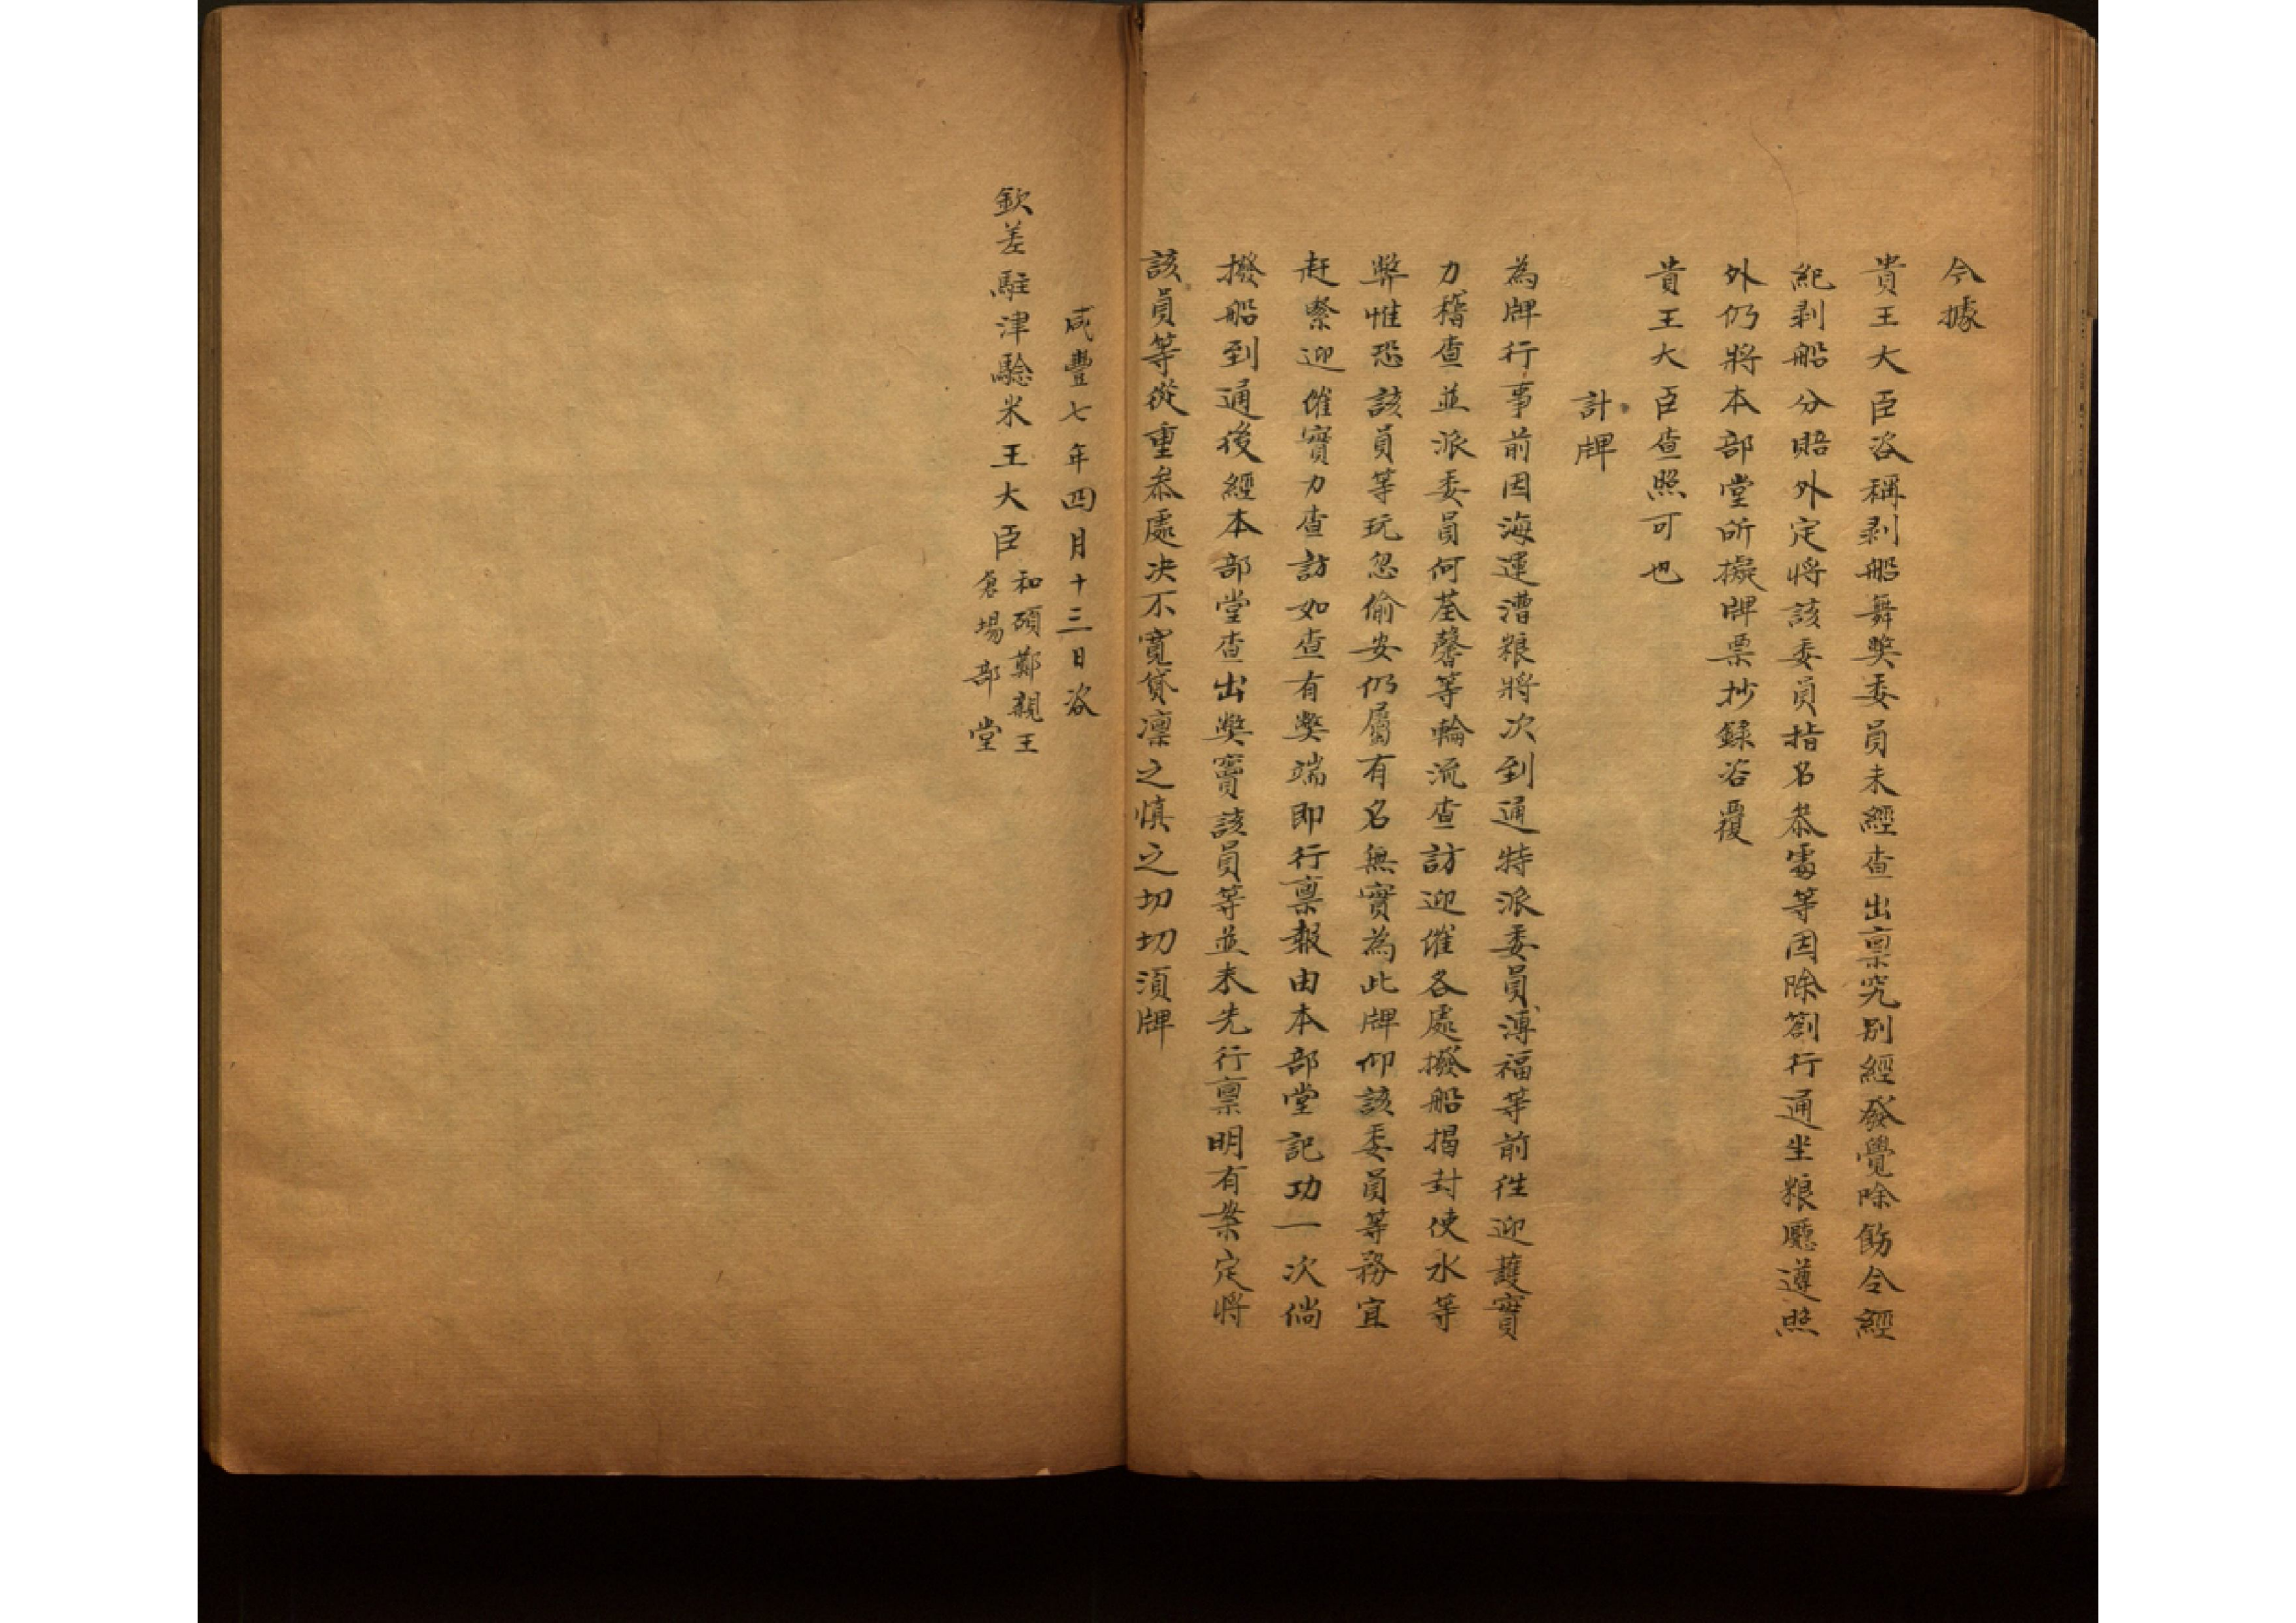 今據
貴王大臣咨稱剥船舞獘委員未經查出禀究别經發覺除飭令經
紀剥船分賠外定將該委員指名叅處等因除劄行通坐粮廳遵照
外仍將本部堂所擬牌票抄録咨覆
貴王大臣查照可也
計牌
為牌行事前因海運漕粮將次到通特派委員溥福等前徃迎護實
力稽查並派委員何荃馨等輪流查訪迎催各處撥船揭封使水等
弊惟恐該員等玩忽偷安仍屬有名無實為此牌仰該委員等務宜
赶緊迎催實力查訪如查有獘端即行禀報由本部堂記功一次倘
撥船到通後經本部堂查出獘竇該員等並未先行禀明有案定將
該員等從重叅處决不寬贷凛之慎之切切須牌
咸豐七年四月十三日咨
欽差駐津驗米王大臣和碩鄭親王
倉場部堂